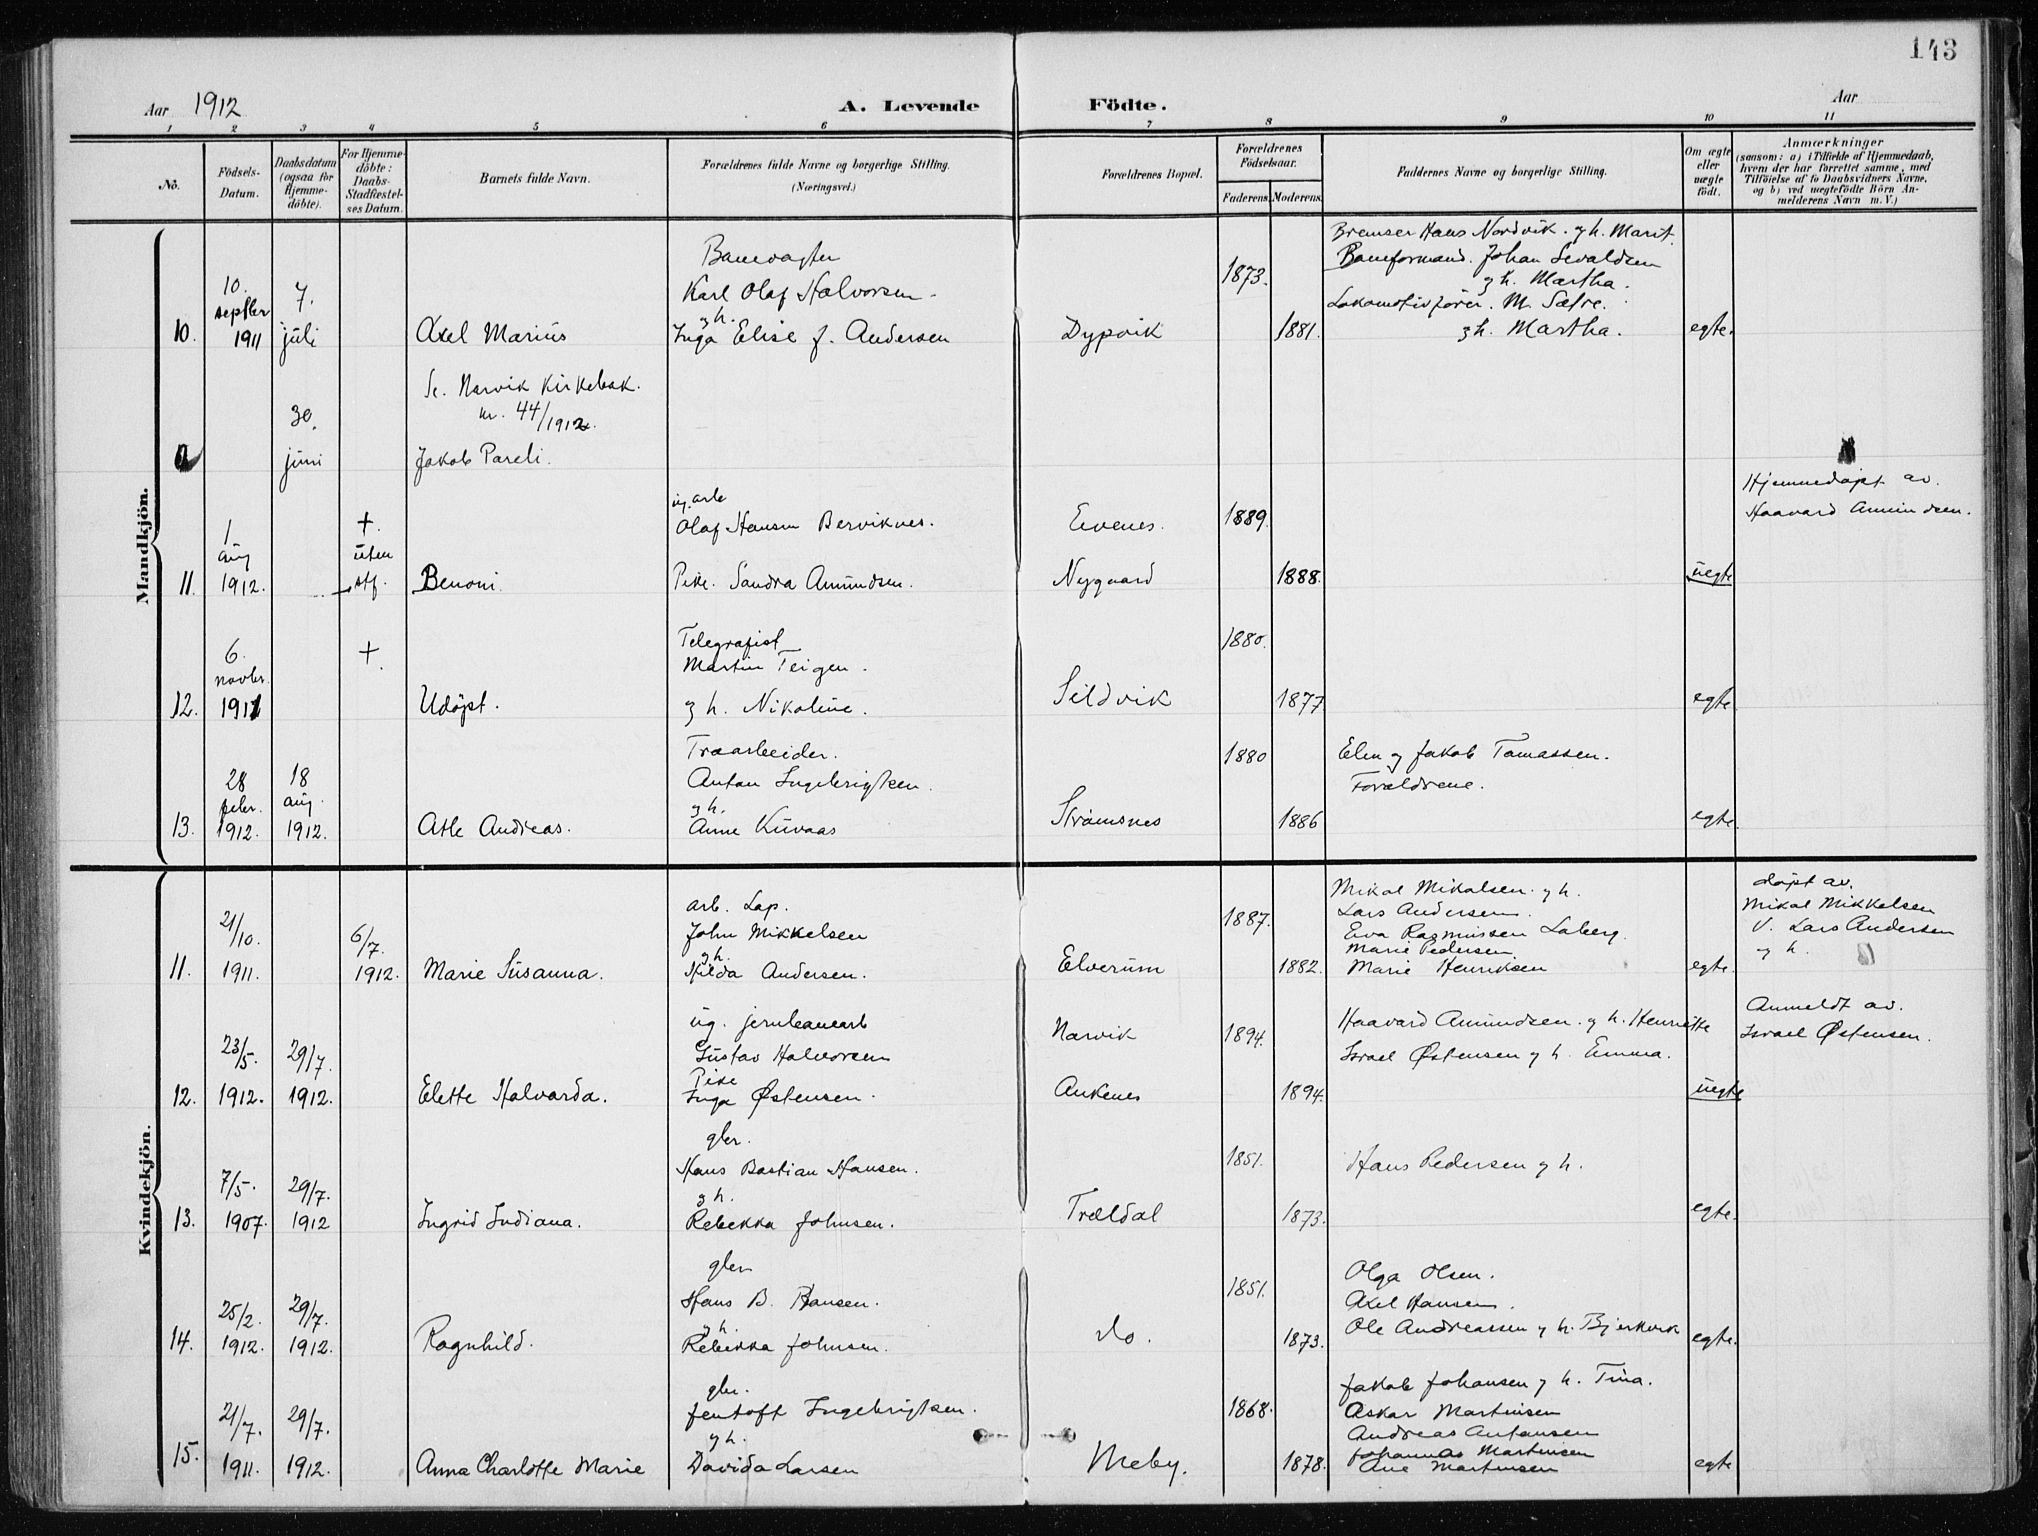 143
Aar 1912
A. Levende Födte.
Aar
1 2 3 4 5 6 7 8 9 10 11
Nö.
Födsels-Datum.
Daabsdatum (ogsaa for Hjemme-döbte).
For Hjemme-döbte: Daabs-Stadfæstel-ses Datum.
Barnets fulde Navn.
Forældrenes fulde Navne og borgerlige Stilling. (Næringsvei.)
Forældrenes Bopæl.
Forældrenes Födselsaar.
Faderens. Moderens.
Faddernes Navne og borgerlige Stilling.
Om ægte eller uægte födt.
Anmærkninger (saasom: a) i Tilfælde af Hjemmedaab, hvem der har forrettet samme, med Tilföielse af to Daabsvidners Navne, og b) ved uægtefödte Börn An-melderens Navn m. V.)
Mandkjön.
10.
10. septbr 1911
7. juli
Axel Marius
Banevagter
Karl Olaf Halvorsen
g h.
Inga Elise f. Andersen
Dypvik
1873.
1881.
Bremser Hans Nordvik. g h. Marit.
Baneformand. Johan Sevaldsen
g h. Martha.
Lokomotivfører. M. Sætre.
g h. Martha.
egte.
30. juni
Se. Narvik Kirkebok.
nr. 44/1912.
Jakob Pareli.
11.
1 aug 1912.
+. uten stf.
Benoni
ug. arb
Olaf Hansen Berviknes.
Pike. Sandra Amundsen.
Evenes.
Nygaard
1889.
1888.
uegte
Hjemmedøpt av.
Haavard Amundsen.
12.
6. novbr. 1911
+.
Udøpt.
Telegrafist
Martin Teigen.
g h. Nikoline.
Sildvik
1880.
1877
egte
13.
28 febr. 1912.
18 aug. 1912.
Atle Andreas.
Træarbeider.
Anton Ingebrigtsen.
g h.
Anne Kuvaas
Strømsnes
1880
1886
Elen g Jakob Tomassen.
Forældrene.
egte.
Kvindekjön.
11.
21/10. 1911.
6/7. 1912.
Marie Susanna.
arb. Lap.
John Mikkelsen
g h.
Hilda Andersen.
Elverum
1887.
1882.
Mikal Mikalsen. g h.
Lars Andersen.
Eva Rasmussen Laberg.
Marie Pedersen
Marie Henriksen
egte.
døpt av.
Mikal Mikkelsen
V. Lars Andersen
g h.
12.
23/5. 1912.
29/7. 1912.
Elette Halvarda.
ug. jernbanearb
Gustav Halvorsen
Pike
Inga Østensen.
Narvik
Ankenes
1894.
1894.
Haavard Amundsen. g h. Henriette
Israel Østensen g h. Emma.
uegte
Anmeldt av.
Israel Østensen.
13.
7/5. 1907.
29/7. 1912
Ingrid Indiana.
gbr.
Hans Bastian Hansen.
g h.
Rebekka Johnsen.
Trældal
1851.
1873.
Hans Pedersen g h.
egte.
14.
25/2. 1912.
29/7. 1912.
Ragnhild.
gbr
Hans B. Hansen.
g h.
Rebekka Johnsen.
do.
1851.
1873.
Olga Olsen.
Axel Hansen.
Ole Andreassen g h. Bjerkvik
egte.
15.
21/7. 1911.
29/7. 1912.
Anna Charlotte Marie
gbr.
Jentoft Ingebrigtsen.
g h.
Davida Larsen
Meby.
1868.
1878.
Jakob Johansen g h. Tina.
Askar Martinsen
Andreas Antonsen
Johannas Martinsen
Ane Martinsen
egte